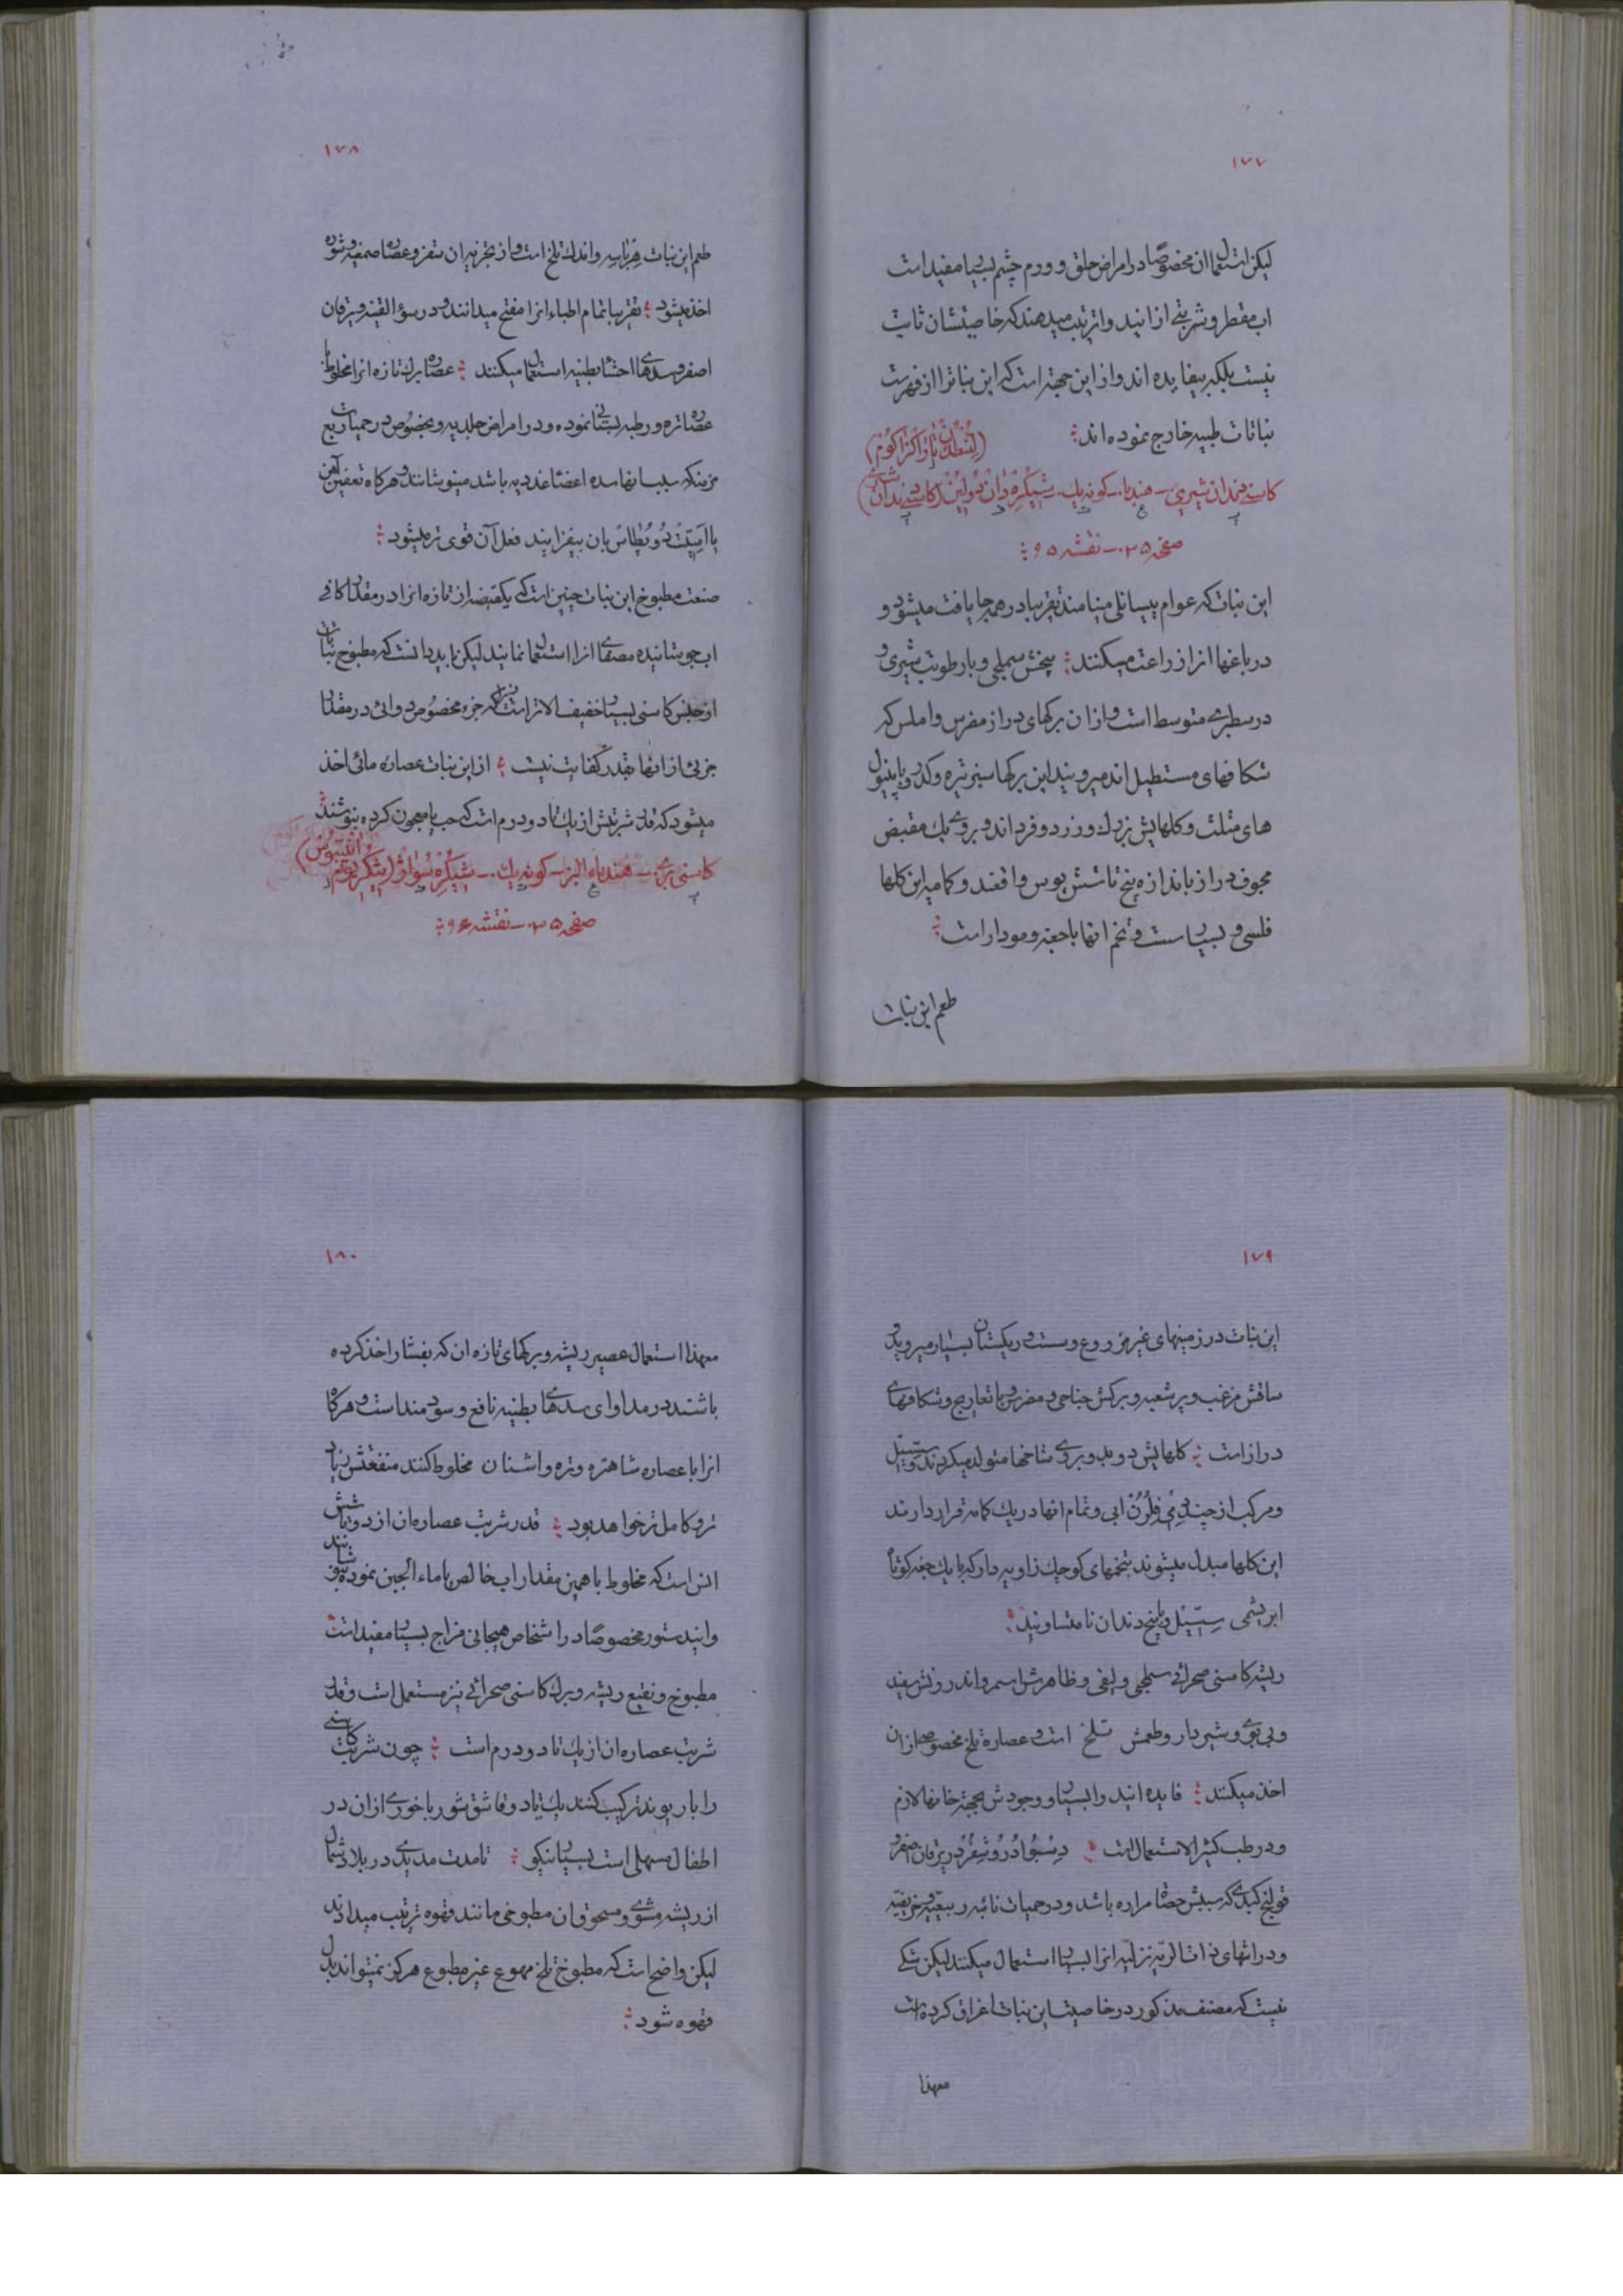 ۱۷۷
لیکن استعمال ان مخصوصًا در امراض حلق و ورم چشم بسیار مفید است
اب مقطر و شربتی از انید و ا ترتیب میدهند که خاصیتشان ثابت
نیست بلکه بیفایده اند و از این جهة است که این نبات را از فهرست
نباتات طبیه خارج نموده اند
کاسنی دندان شیری – هندباء – کونه یک
صفحه ۲۵ – نقشه ۹۵
این نبات که عوام پیسانلی مینامند تقریبا در همه جا یافت میشود و
در باغها انرا زراعت میکنند بیخش سهلجی و با رطوبت شیری و
در سطبری متوسط است و از ان برکهای دراز مضرس و املس که
شکافهای مستطیل اند میرویند این برکها سبز تیره و کلد و با پینول
های مثلث و کلهایش بزرك و زرد و فرد اند و بروی یك مقبض
مجوف دراز باندازه پنج تا شش پوس واقعند و کامه این کلها
فلسی و بسیار سست و تخم انها با جعبه و مودار است
طعم این نبات
۱۷۸
طعم این نبات هرباسیه و اندك تلخ است و از تجزیه ان شفز و عصاره صمغیه و شوره
اخذ میشود تقریبا تمام اطباء انرا مفتح میدانند و در سوء القنیه و یرقان
اصفر و سدهای احشاء بطنیه استعمال میکنند عصاره برك تازه انرا مخلوط با
عصاره تره و رطبه بستانی نموده و در امراض جلدیه و بخصوص در حمیات ربع
مزمنه که بسبب انها سده اعضاء غددیه باشد مینوشانند و هرکاه تعفین آهن
یا اسیتت دو پطاس بان بیفزایند فعل آن قوی تر میشود
صنعت مطبوخ این نبات چنین است که یکقبضه از تازه انرا در مقدار کافی
اب جوشانیده مصفای انرا استعمال نمایند لیکن باید دانست که مطبوخ نباتات
از جنس کاسنی بسیار خفیف الاثر است زیرا که جزء مخصوص دوائی در مقدار
جزئی از انها بقدر کفایت نیست از این نبات عصاره مائی اخذ
میشود که قدر شربتش از یك تا دو درم است که حب یا معجون کرده بنوشند
کاسنی بری – هندباء البر – کونه یك – شیکره سواژ (شیکریوم انتیبوس)
صفحه ۲۵ – نقشه ۹۶
۱۷۹
این نبات در زمینهای غیر مزروع و سست و ریکستان بسیار میروید و
ساقش مزغب و پر شعبه و برکش جناحی و مضرس با تعاریج و شکافهای
دراز است کلهایش دوبدو بروی شاخها متولد میکردند و سسیل
و مرکب از چند دمی فلرن ابی و تمام انها در یك کامه قرار دارند
این کلها مبدل میشوند بتخمهای کوچك زاویه دار که با یك جعبه کوتاه
ابریشمی سسیل و با پنج دندان نا متساویند
ریشه کاسنی صحرائی سهلجی و لیفی و ظاهرش اسمر و اندرونش سفید
و بی بوی و شیردار و طعمش تلخ است و عصاره تلخ مخصوصی از ان
اخذ میکنند فایده انید وا بسیار و وجودش بجهة خانها لازم
و در طب کثیر الاستعمال است دسبوا دروشفر در یرقان اصفر و
قولنج کبدی که سببش حصاة مراره باشد و در حمیات نائبه ربیعیه و خریفیه
و در اشهای ذات الریه نزلیه انرا بسیار استعمال میکنند لیکن شکی
نیست که مصنف مذکور در خاصیت این نبات اغراق کرده است
معهذا
۱۸۰
معهذا استعمال عصیر ریشه و برکهای تازه ان که بفشار اخذ کرده
باشند در مداوای سدهای بطنیه نافع و سودمند است و هرکاه
انرا با عصاره شاهتره و تره و اشنان مخلوط کنند منفعتش زیاد
تر و کامل تر خواهد بود قدر شربت عصاره ان از دو تا شش
انس است که مخلوط با همین مقدار اب خالص یا ماء الجبن نموده بنوشانند
و انید ستور مخصوصًا در اشخاص هیجانی مزاج بسیار مفید است
مطبوخ و نقیع ریشه و برك کاسنی صحرائی نیز مستعمل است و قدر
شربت عصاره ان از یك تا دو درم است چون شربت کاسنی
را با ریوند ترکیب کنند یك تا دو قاشق شورباخوری از ان در
اطفال مسهلی است بسیار نیکو تا مدت مدیدی در بلاد شمال
از ریشه مشوی و مسحوق ان مطبوخی مانند قهوه ترتیب میدادند
لیکن واضح است که مطبوخ تلخ مهوع غیر مطبوع هرکز نمیتواند بدل
قهوه شود